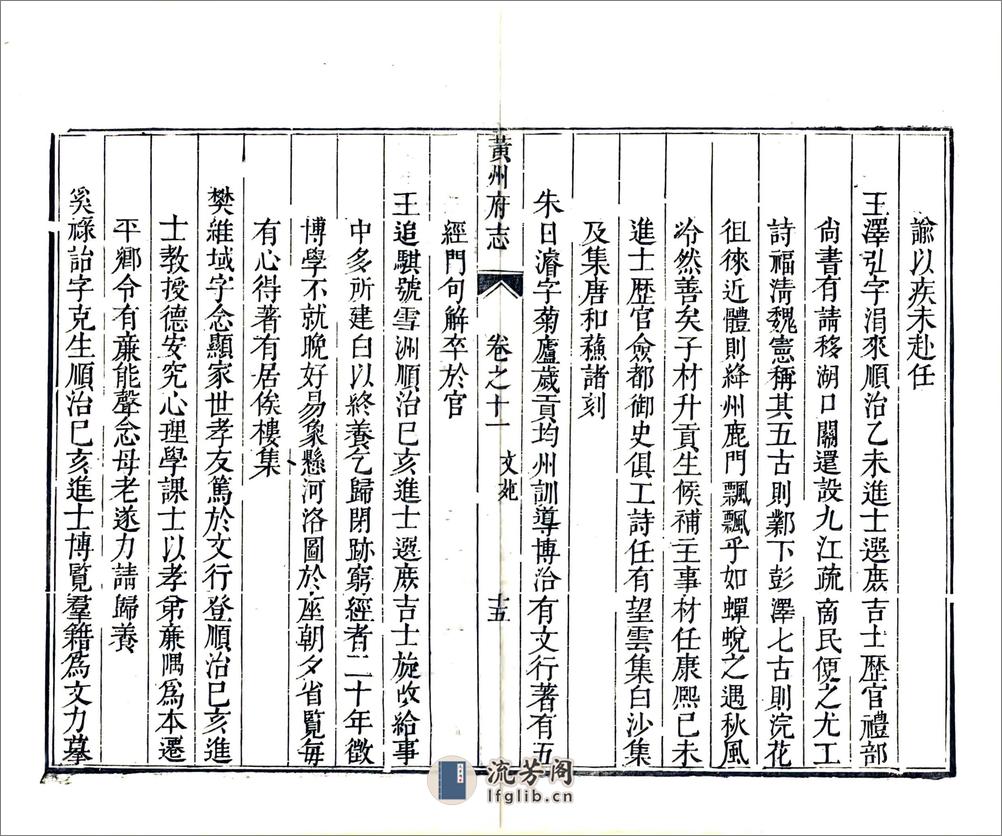 諭以疾未赴任
王澤弘字涓來順治乙未進士選庶吉士歷官禮部
尙書有請移湖口關還設九江疏商民便之尤工
詩福淸魏憲稱其五古則鄴下彭澤七古則浣花
徂徠近體則絳州鹿門飄飄乎如蟬蛻之遇秋風
冷然善矣子材升貢生候補主事材任康熙已未
進士歷官僉都御史俱工詩任有望雲集白沙集
及集唐和蘓諸刻
朱日濬字菊廬歲貢均州訓導博洽有文行著有五
經門句解卒於官
黃州府志
卷之十一
文苑
十五
王追騏號雪洲順治巳亥進士選庶吉士旋改給事
中多所建白以終養乞歸閉跡窮經者二十年徵
博學不就晚好易象懸河洛圖於座朝夕省覽每
有心得著有居俟樓集
樊維域字念顯家世孝友篤於文行登順治巳亥進
士教授德安究心理學課士以孝弟亷隅爲本遷
平鄉令有亷能聲念母老遂力請歸養
奚祿詒字克生順治巳亥進士博覽羣籍爲文力摹
流芳阁
lfglib.cn